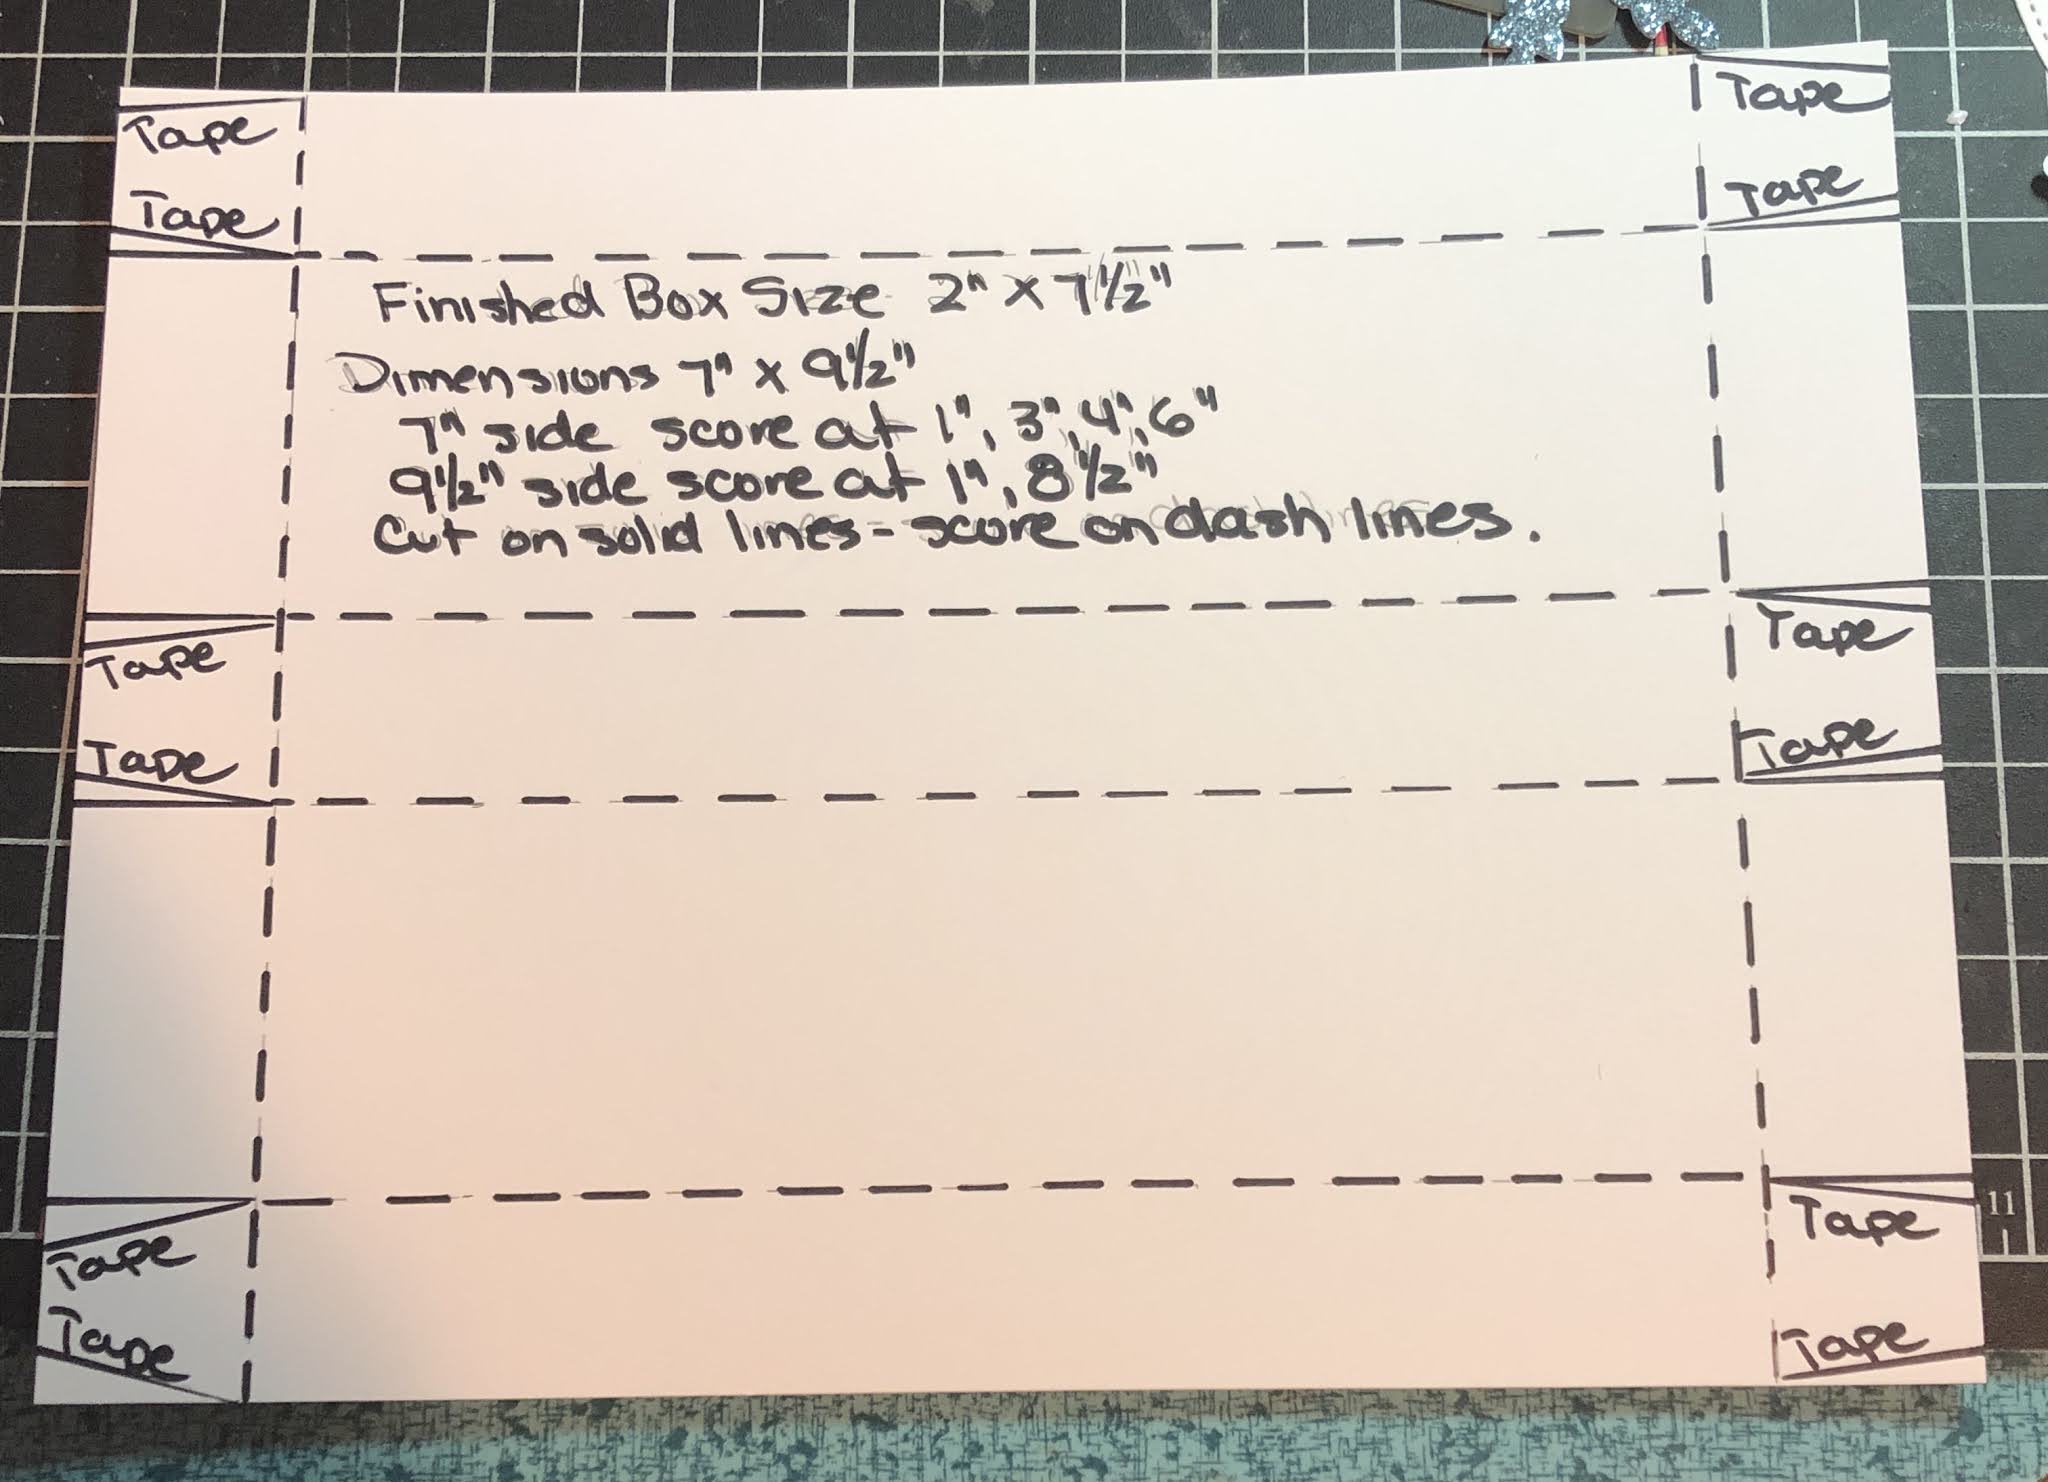 Tape
Tape
Tape
Tape
Finished Box Size 2" x 7 1/2"
Dimensions 7" x 9 1/2"
7" side score at 1", 3", 4", 6"
9 1/2" side score at 1", 8 1/2"
Cut on solid lines - score on dash lines.
Tape
Tape
Tape
Tape
11
Tape
Tape
Tape
Tape